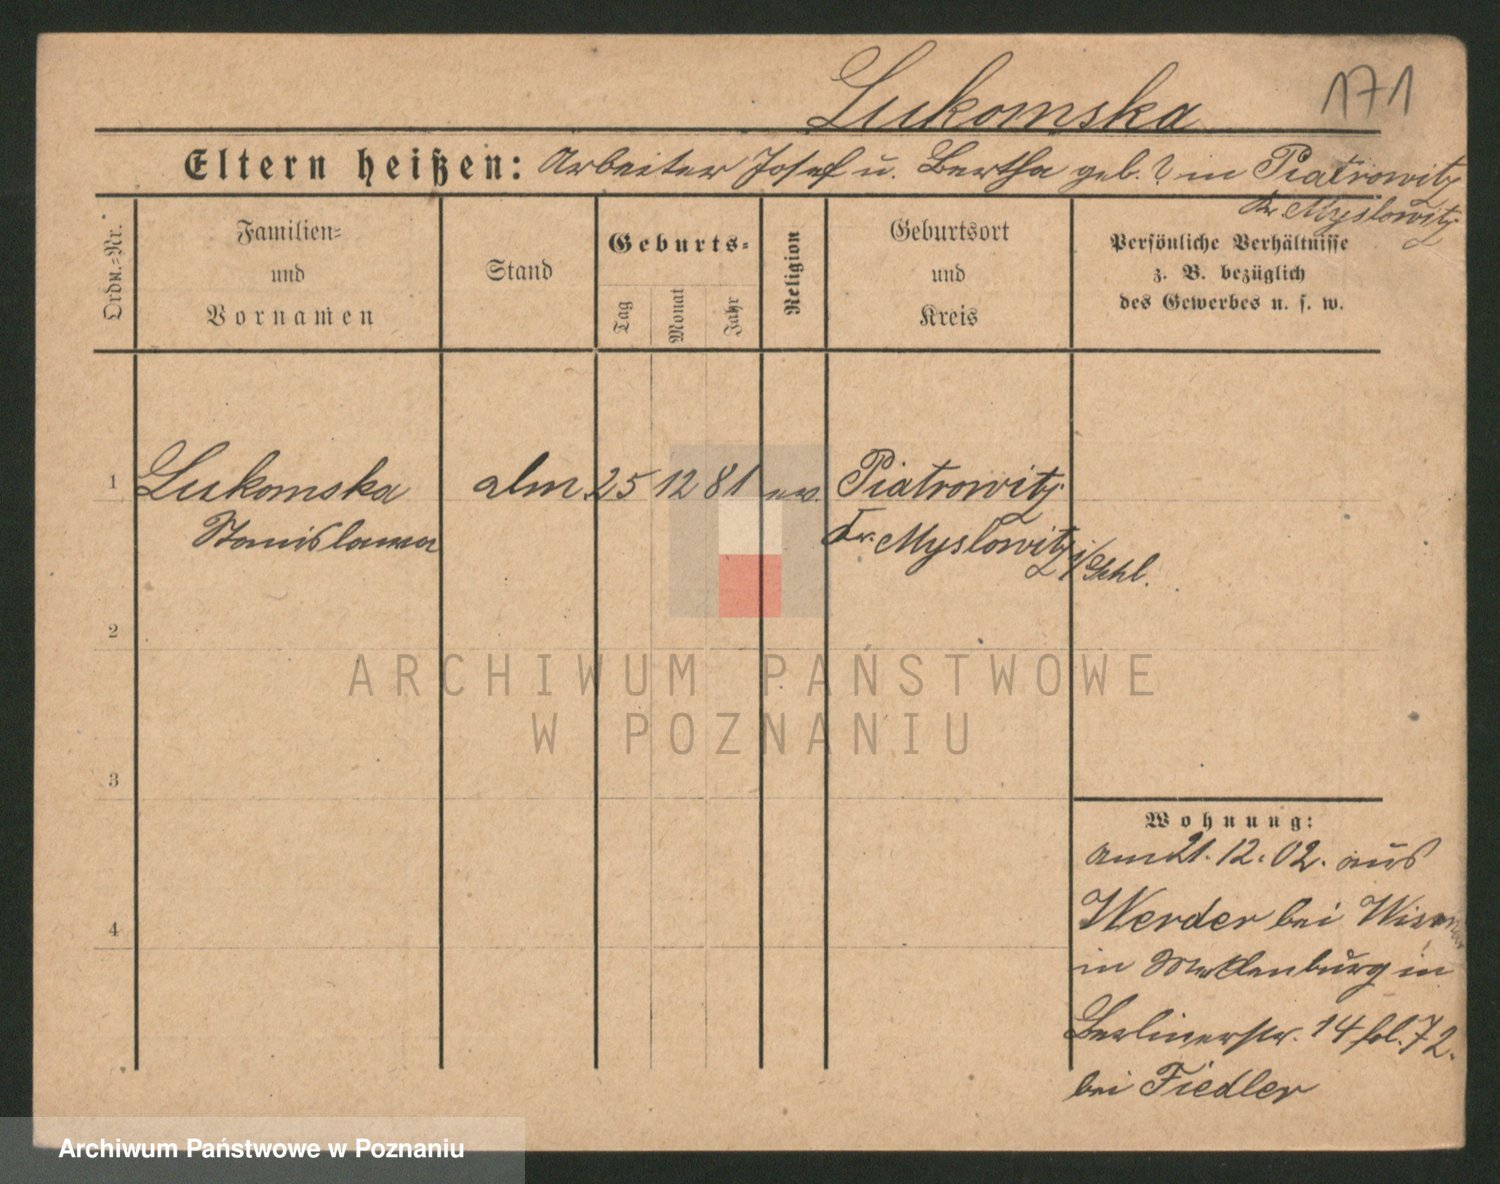 Lukomska
171
Eltern heißen: Arbeiter Josef u. Bertha geb. ? in Piatrowitz
Kr. Myslowitz
Ordn.-Nr.
Familien-
und
Vornamen
Stand
Geburts-
Tag
Monat
Jahr
Religion
Geburtsort
und
Kreis
Persönliche Verhältnisse
z. B. bezüglich
des Gewerbes u. s. w.
1 Lukomska 25 12 81 Piatrowitz
Stanislawa Kr. Myslowitz i/Schl.
2
3
4
ARCHIWUM PAŃSTWOWE
W POZNANIU
Wohnung:
am 21.12.02. aus
Werder bei Wismar
in Mecklenburg in
Berlinerstr. 14 fol. 72.
bei Fiedler
Archiwum Państwowe w Poznaniu